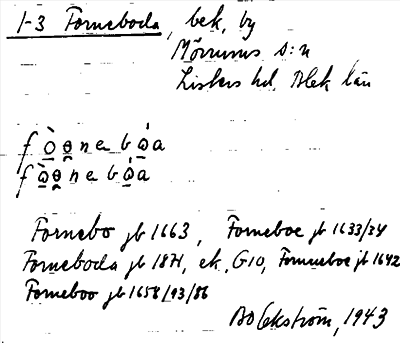 1-3 Forneboda, bek, by
Mörrums s:n
Listers hd, Blek län
f ò̱ ɵ̱ n e b ò̱ a
f ò̱ ɵ̱ n e b ó̱ a
Fornebo jb 1663, Forneboe jb 1633/34
Forneboda jb 1871, ek, G10, Fornneboe jb 1642
Forneboo jb 1658/93/86
Bo Ekström, 1943